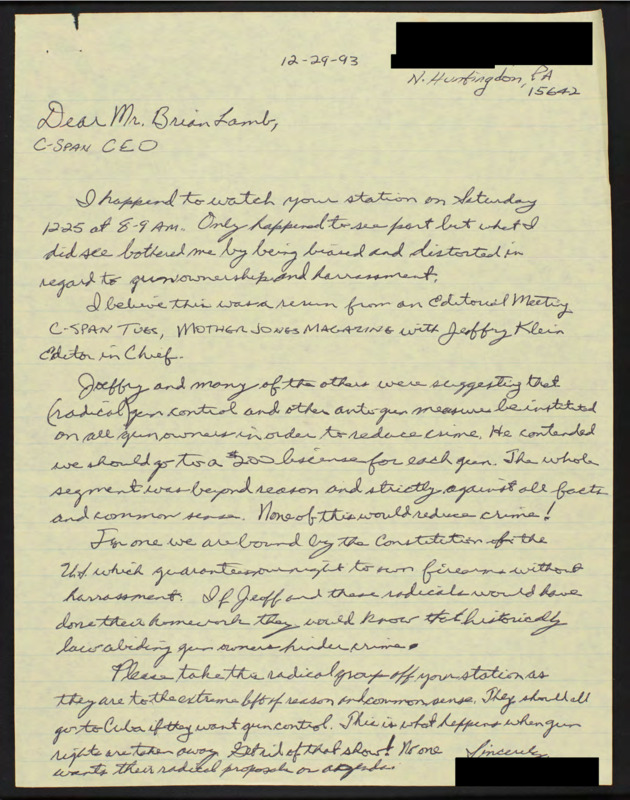 12-29-93
N. Huntingdon, PA
15642
Dear Mr. Brian Lamb,
C-SPAN CEO
I happend to watch your station on Saturday
12-25 at 8-9 AM. Only happened to see part but what I
did see bothered me by being biased and distorted in
regard to gun ownership and harrassment.
I believe this was a rerun from an Editorial Meeting
C-SPAN TUES, MOTHER JONES MAGAZINE with Jeffry Klein
Editor in Chief.
Jeffry and many of the others were suggesting that
(radical) gun control and other anti gun measures be instituted
on all gun owners in order to reduce crime. He contended
we should go to a $200 liscense for each gun. The whole
segment was beyond reason and strictly against all facts
and common sense. None of this would reduce crime!
For one we are bound by the Constitution of the
U.S. which guarantees our right to own firearms without
harrassment. If Jeoff and these radicals would have
done their homework they would know that historicly
law abiding gun owners hinder crime.
Please take this radical group off your station as
they are to the extreme left of reason and common sense. They should all
go to Cuba if they want gun control. This is what happens when gun
right are taken away. Get rid of that show! No one
wants their radical proposals or agendas
Sincerely